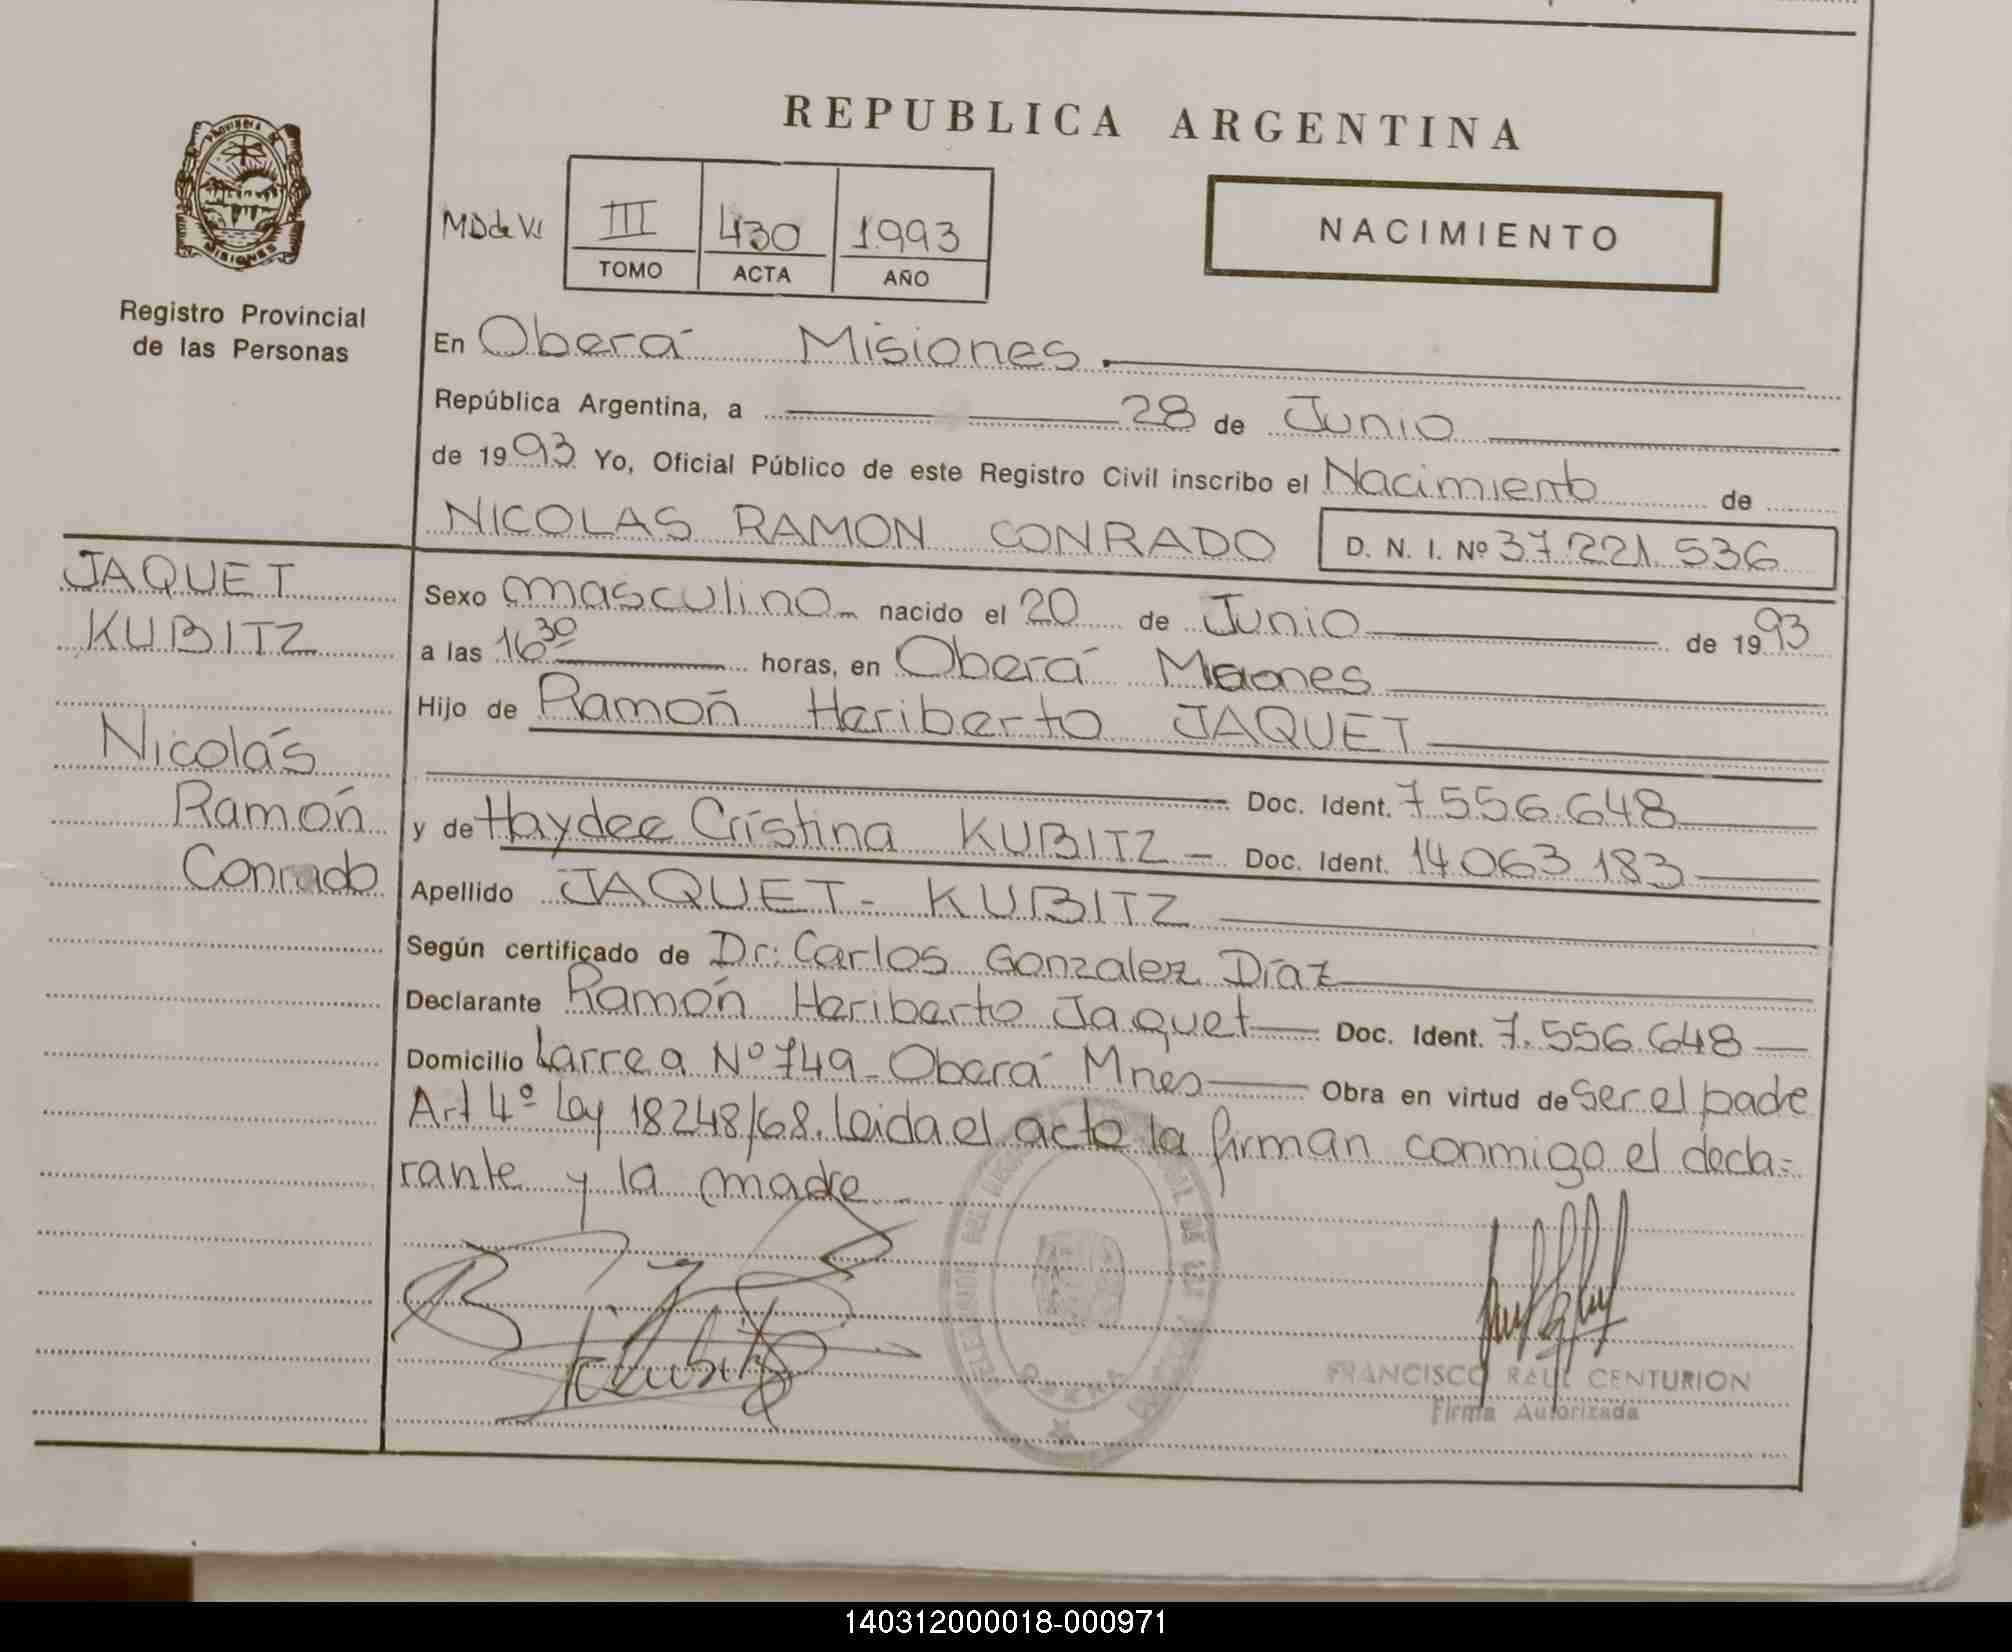 REPUBLICA ARGENTINA
PROVINCIA DE
MISIONES
Registro Provincial
de las Personas
MD de Vs
III 430 1993
TOMO ACTA AÑO
NACIMIENTO
En Oberá Misiones.
República Argentina, a 28 de Junio
de 1993 Yo, Oficial Público de este Registro Civil inscribo el Nacimiento de
NICOLAS RAMON CONRADO D. N. I. Nº 37.221.536
JAQUET
KUBITZ
Nicolás
Ramón
Conrado
Sexo masculino nacido el 20 de Junio de 1993
a las 16 30 horas, en Oberá Misiones
Hijo de Ramón Heriberto JAQUET
Doc. Ident. 7.556.648
y de Haydee Cristina KUBITZ - Doc. Ident. 14.063.183
Apellido JAQUET - KUBITZ
Según certificado de Dr: Carlos Gonzalez Díaz
Declarante Ramón Heriberto Jaquet Doc. Ident. 7.556.648
Domicilio Larrea Nº 749 - Oberá Mnes Obra en virtud de ser el padre
Art 4º Ley 18248/68. Leida el acta la firman conmigo el decla-
rante y la madre
FRANCISCO RAUL CENTURION
Firma Autorizada
140312000018-000971